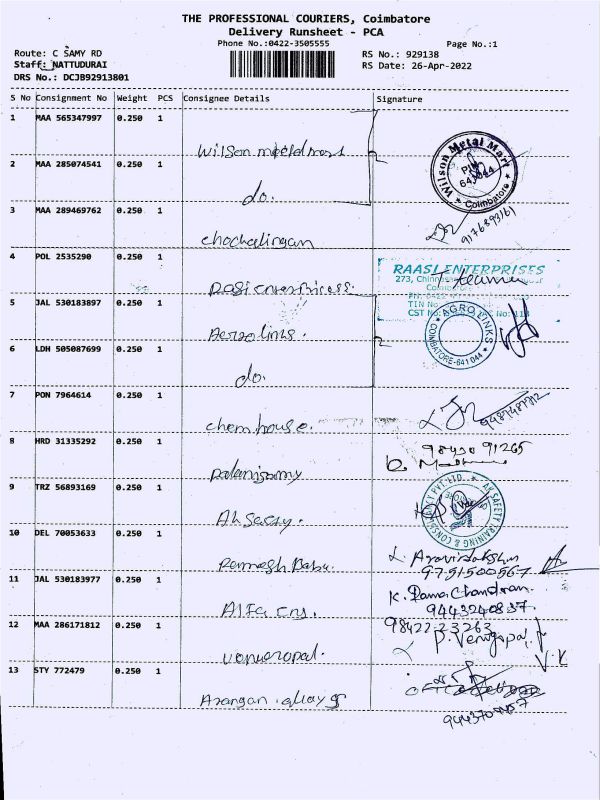 THE PROFESSIONAL COURIERS, Coimbatore
Delivery Runsheet - PCA
Phone No.:0422-3505555
Page No.:1
Route: C SAMY RD
RS No.: 929138
Staff: NATTUDURAI
RS Date: 26-Apr-2022
DRS No.: DCJB92913801
S No Consignment No Weight PCS Consignee Details Signature
1 MAA 565347997 0.250 1
Wilson Metal Mart Coimbatore
2 MAA 285074541 0.250 1
do.
3 MAA 289469762 0.250 1
chochalingam
4 POL 2535290 0.250 1
RAASI ENTERPRISES
273,
CST No:
5 JAL 530183897 0.250 1
AGRO LINKS
COIMBATORE-641 044
6 LDH 505087699 0.250 1
do.
7 PON 7964614 0.250 1
chem house.
8 HRD 31335292 0.250 1
98430 91265
Palanisamy
9 TRZ 56893169 0.250 1
AK SAFETY TRAINING & CONSULTANCY PVT. LTD.
10 DEL 70053633 0.250 1
Ramesh Babu
9751500567
11 JAL 530183977 0.250 1
K. Rama Chandran.
9443240837.
12 MAA 286171812 0.250 1
98422-23263
P. Venugopal
V.K
13 STY 772479 0.250 1